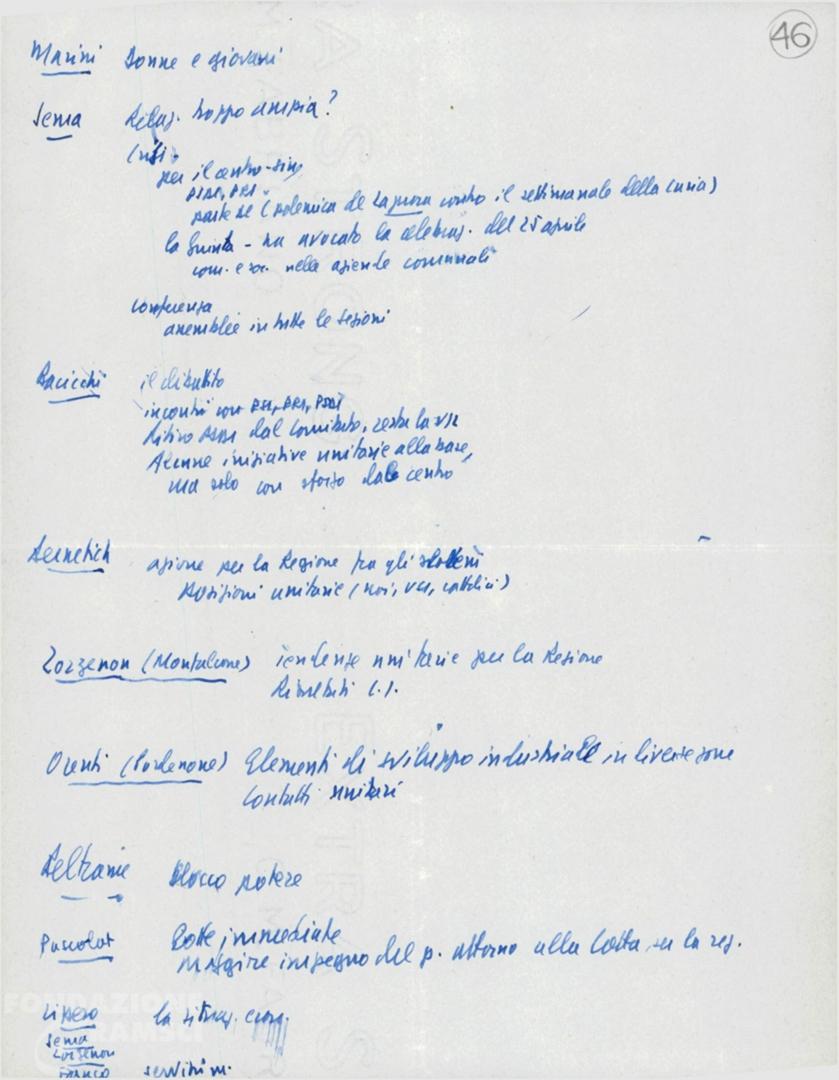 46
Marini Donne e giovani
Sema Relaz. troppo ampia?
Crisi -
per il centro-sin,
PSDI, PRI -
parte DC (polemica de La prora contro il settimanale della Curia)
la Giunta - ha avocato la celebraz. del 25 aprile
com. e soc. nelle aziende comunali
Conferenza
assemblee in tutte le sezioni
Bacicchi il dibattito
incontri con PSI, PRI, PSDI
Ritiro PSDI dal Comitato, resta la
Alcune iniziative unitarie alla base,
ma solo con sforzo dal centro
Bernetich azione per la Regione tra gli sloveni
posizioni unitarie (noi, cattolici)
Zorzenon (Monfalcone) Tendenze unitarie per la Regione
C.I.
(Pordenone) Elementi di sviluppo industriale in diverse zone
Contatti unitari
Beltrame Blocco potere
Pascolat Lotte immediate
Maggiore impegno del p. attorno alla lotta per la reg.
la situaz. econ.
Sema
Zorzenon
Franco
FONDAZIONE
GRAMSCI
EXTRA STRONG